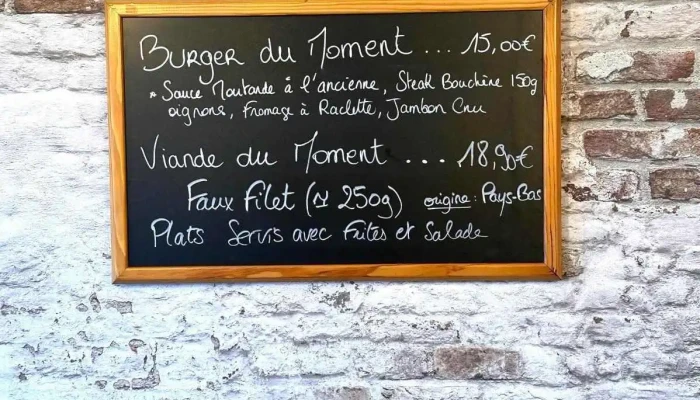 Burger du Moment ... 15,00€
* Sauce Moutarde à l'ancienne, Steak Bouchère 150g
oignons, Fromage à Raclette, Jambon Cru
Viande du Moment ... 18,90€
Faux Filet (≈ 250g) origine : Pays-Bas
Plats Servis avec Frites et Salade